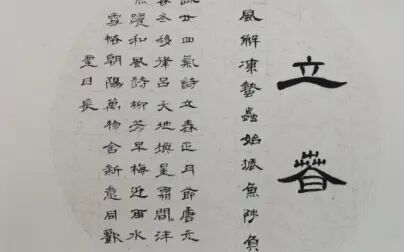 立春
風解凍蟄蟲始振魚陟負
詠廿四氣詩立春正月節唐元
春冬移律呂天地換星霜間泮
魚躍和風待柳芳早梅迎雨水
雪怯朝陽萬物含新意同歡
聖日長